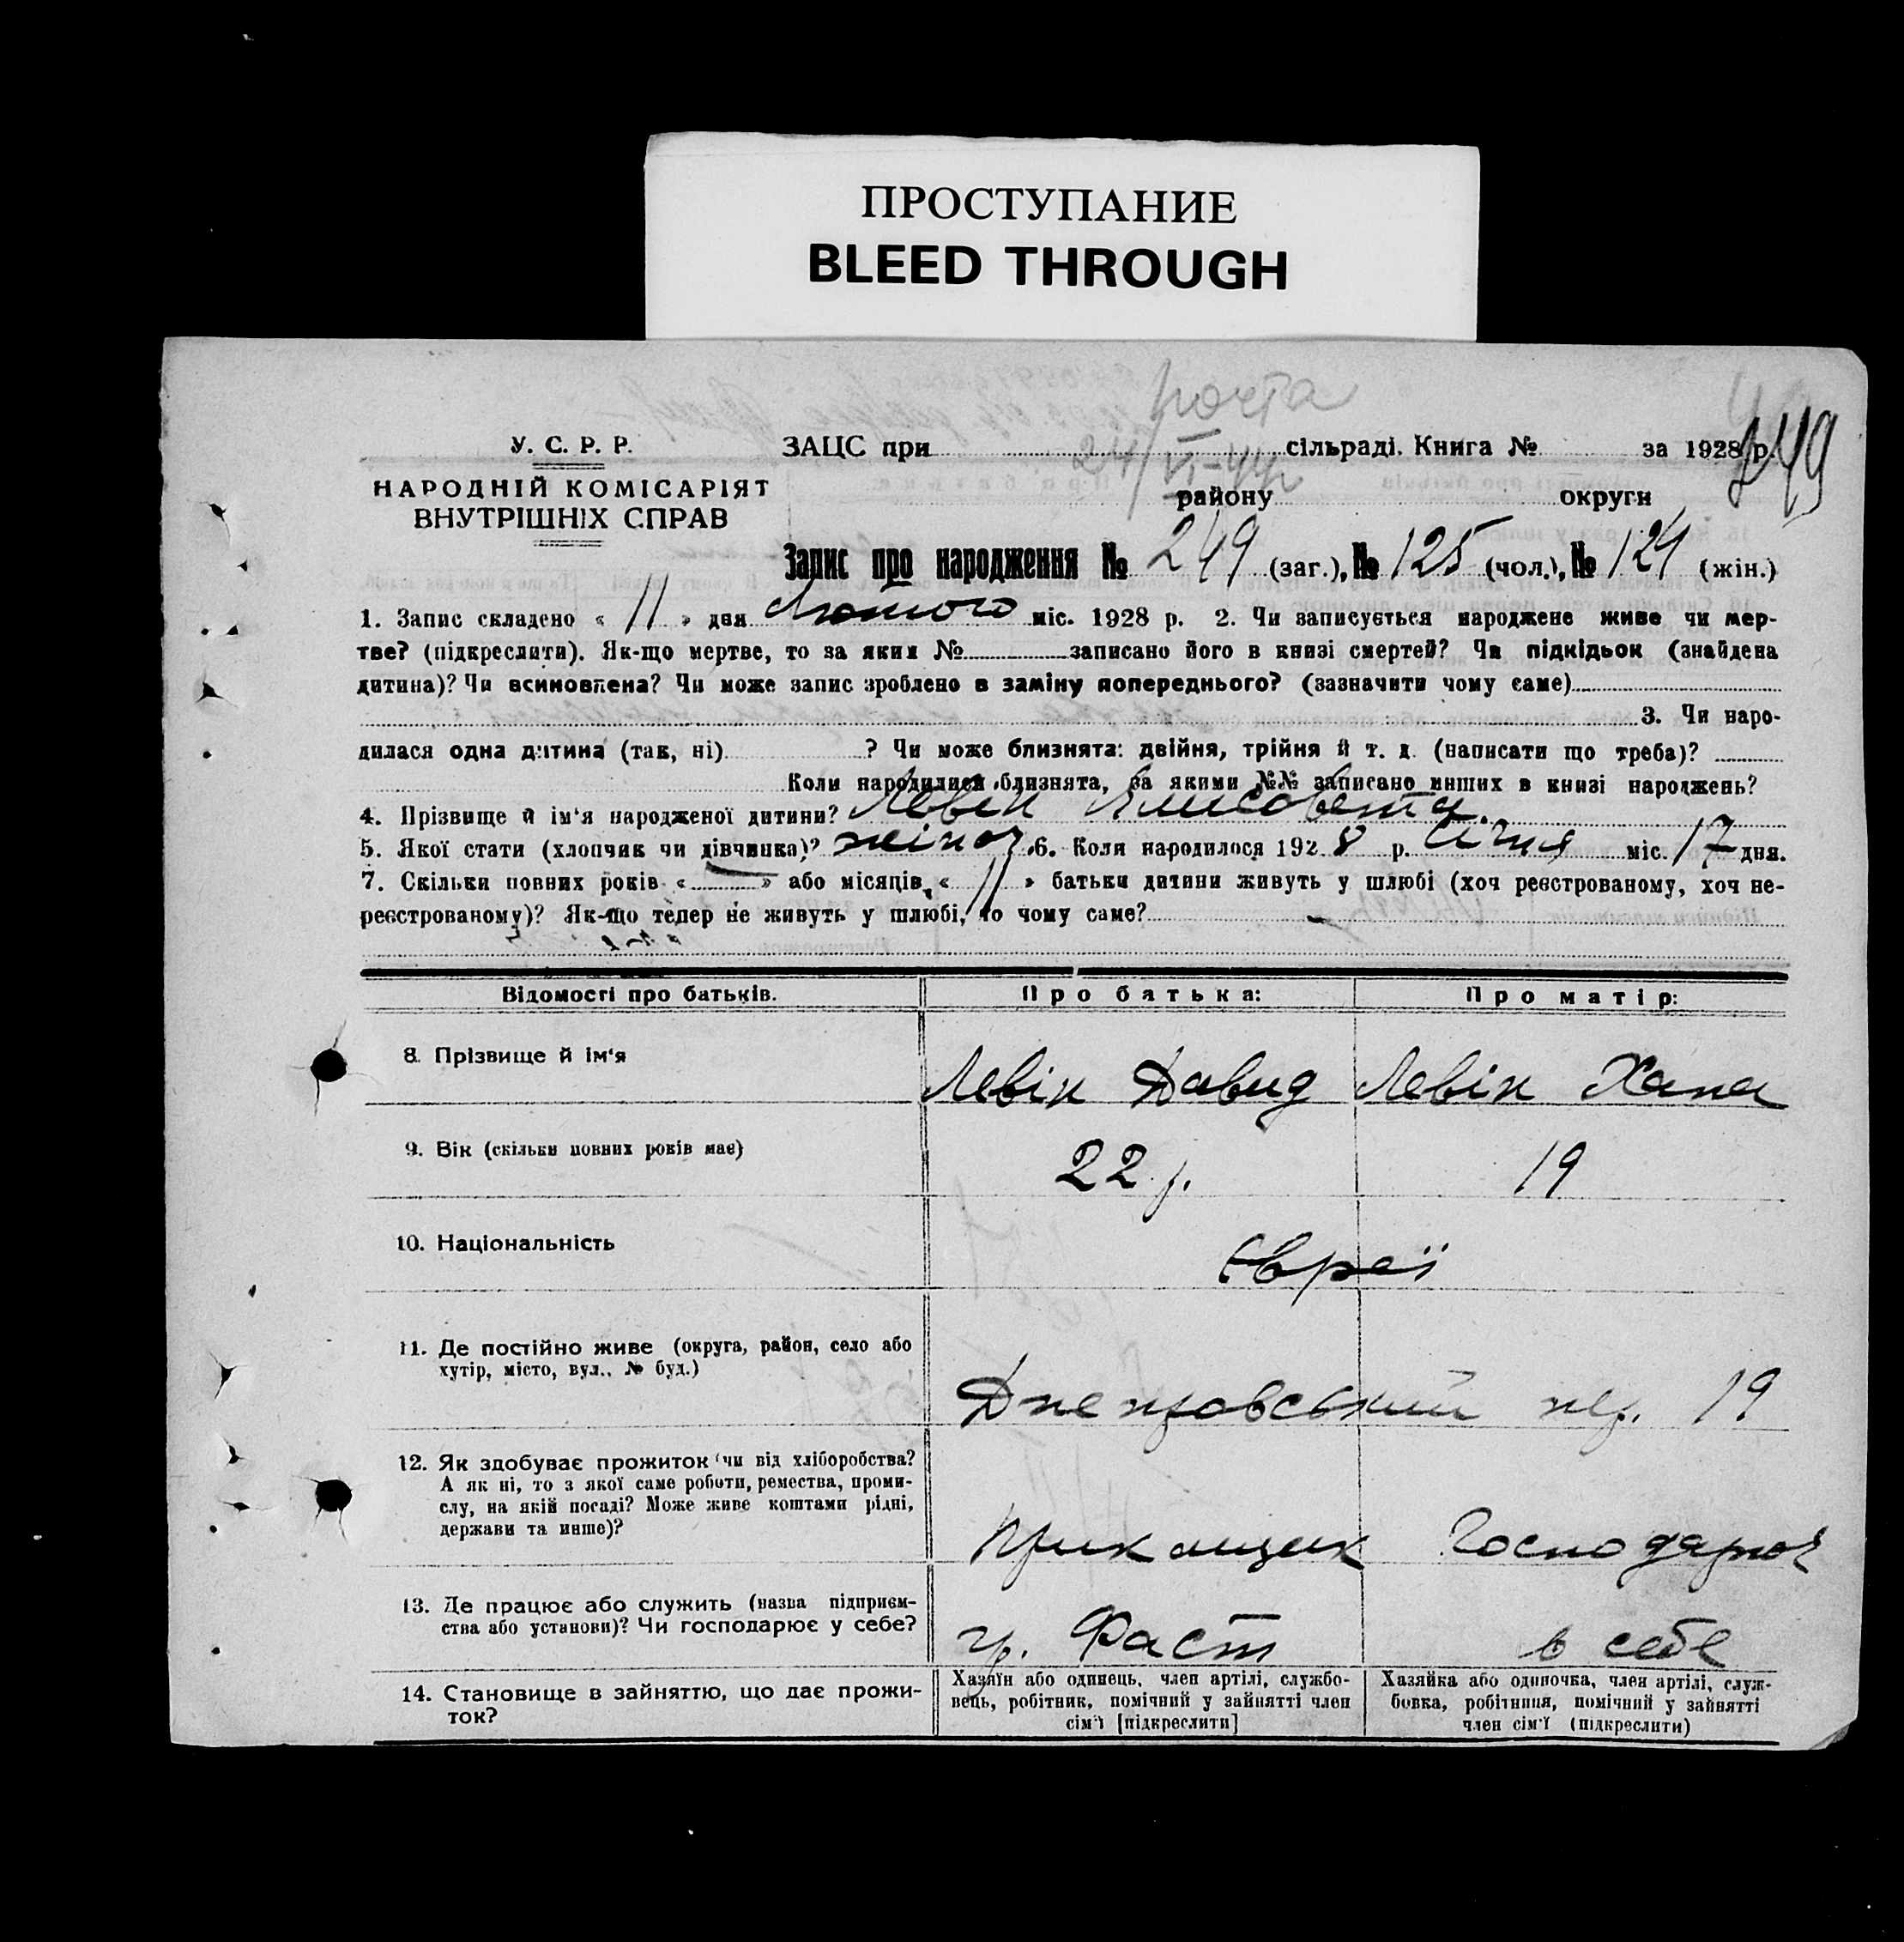 ПРОСТУПАНИЕ
BLEED THROUGH
почта
24/VI-44р
249
У. С. Р. Р.
НАРОДНІЙ КОМІСАРІЯТ
ВНУТРІШНІХ СПРАВ
ЗАЦС при сільраді. Книга № за 1928 р.
району округи
Запис про народження № 249 (заг.), № 125 (чол.), № 124 (жін.)
1. Запис складено « 11 » дня Лютого міс. 1928 р. 2. Чи записується народжене живе чи мер-
тве? (підкреслити). Як-що мертве, то за яким № записано його в книзі смертей? Чи підкідьок (знайдена
дитина)? Чи всиновлена? Чи може запис зроблено в заміну попереднього? (зазначити чому саме)
3. Чи наро-
дилася одна дитина (так, ні) ? Чи може близнята: двійня, трійня й т. д. (написати що треба)?
Коли народилися близнята, за якими №№ записано инших в книзі народжень?
4. Прізвище й ім'я народженої дитини? Левін Елисовета.
5. Якої стати (хлопчик чи дівчинка)? жіноч. 6. Коли народилося 1928 р. Січня міс. 17 дня.
7. Скільки повних років « » або місяців « 11 » батьки дитини живуть у шлюбі (хоч реєстрованому, хоч не-
реєстрованому)? Як-що тепер не живуть у шлюбі, то чому саме? –
Відомості про батьків. Про батька: Про матір:
8. Прізвище й ім'я Левін Давид Левін Хана
9. Вік (скільки повних років має) 22 р. 19
10. Національність Євреї
11. Де постійно живе (округа, район, село або
хутір, місто, вул., № буд.)
пер. 19
12. Як здобуває прожиток (чи від хліборобства?
А як ні, то з якої саме роботи, ремества, проми-
слу, на якій посаді? Може живе коштами рідні,
держави та инше)?
Прикащик Господарюч
13. Де працює або служить (назва підприєм-
ства або установи)? Чи господарює у себе?
гр. Фаст в себе
14. Становище в зайняттю, що дає прожи-
ток?
Хазяїн або одинець, член артілі, службо-
вець, робітник, помічний у зайнятті член
сім'ї [підкреслити]
Хазяйка або одиночка, член артілі, служ-
бовка, робітниця, помічний у зайнятті
член сім'ї (підкреслити)